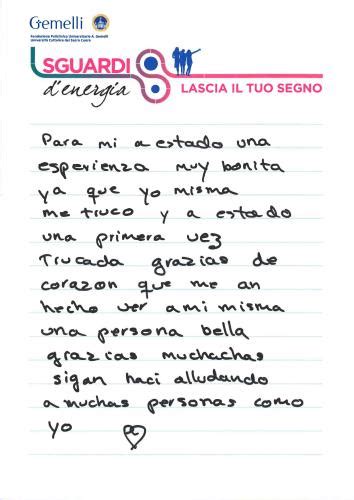 Gemelli
Fondazione Policlinico Universitario A. Gemelli
Università Cattolica del Sacro Cuore
SGUARDI
d'energia
LASCIA IL TUO SEGNO
Para mi a estado una
esperienza muy bonita
ya que yo misma
me truco y a estado
una primera vez
Trucada grazias de
corazon que me an
hecho ver ami misma
una persona bella
grazias muchachas
sigan haci alludando
a muchas personas como
yo